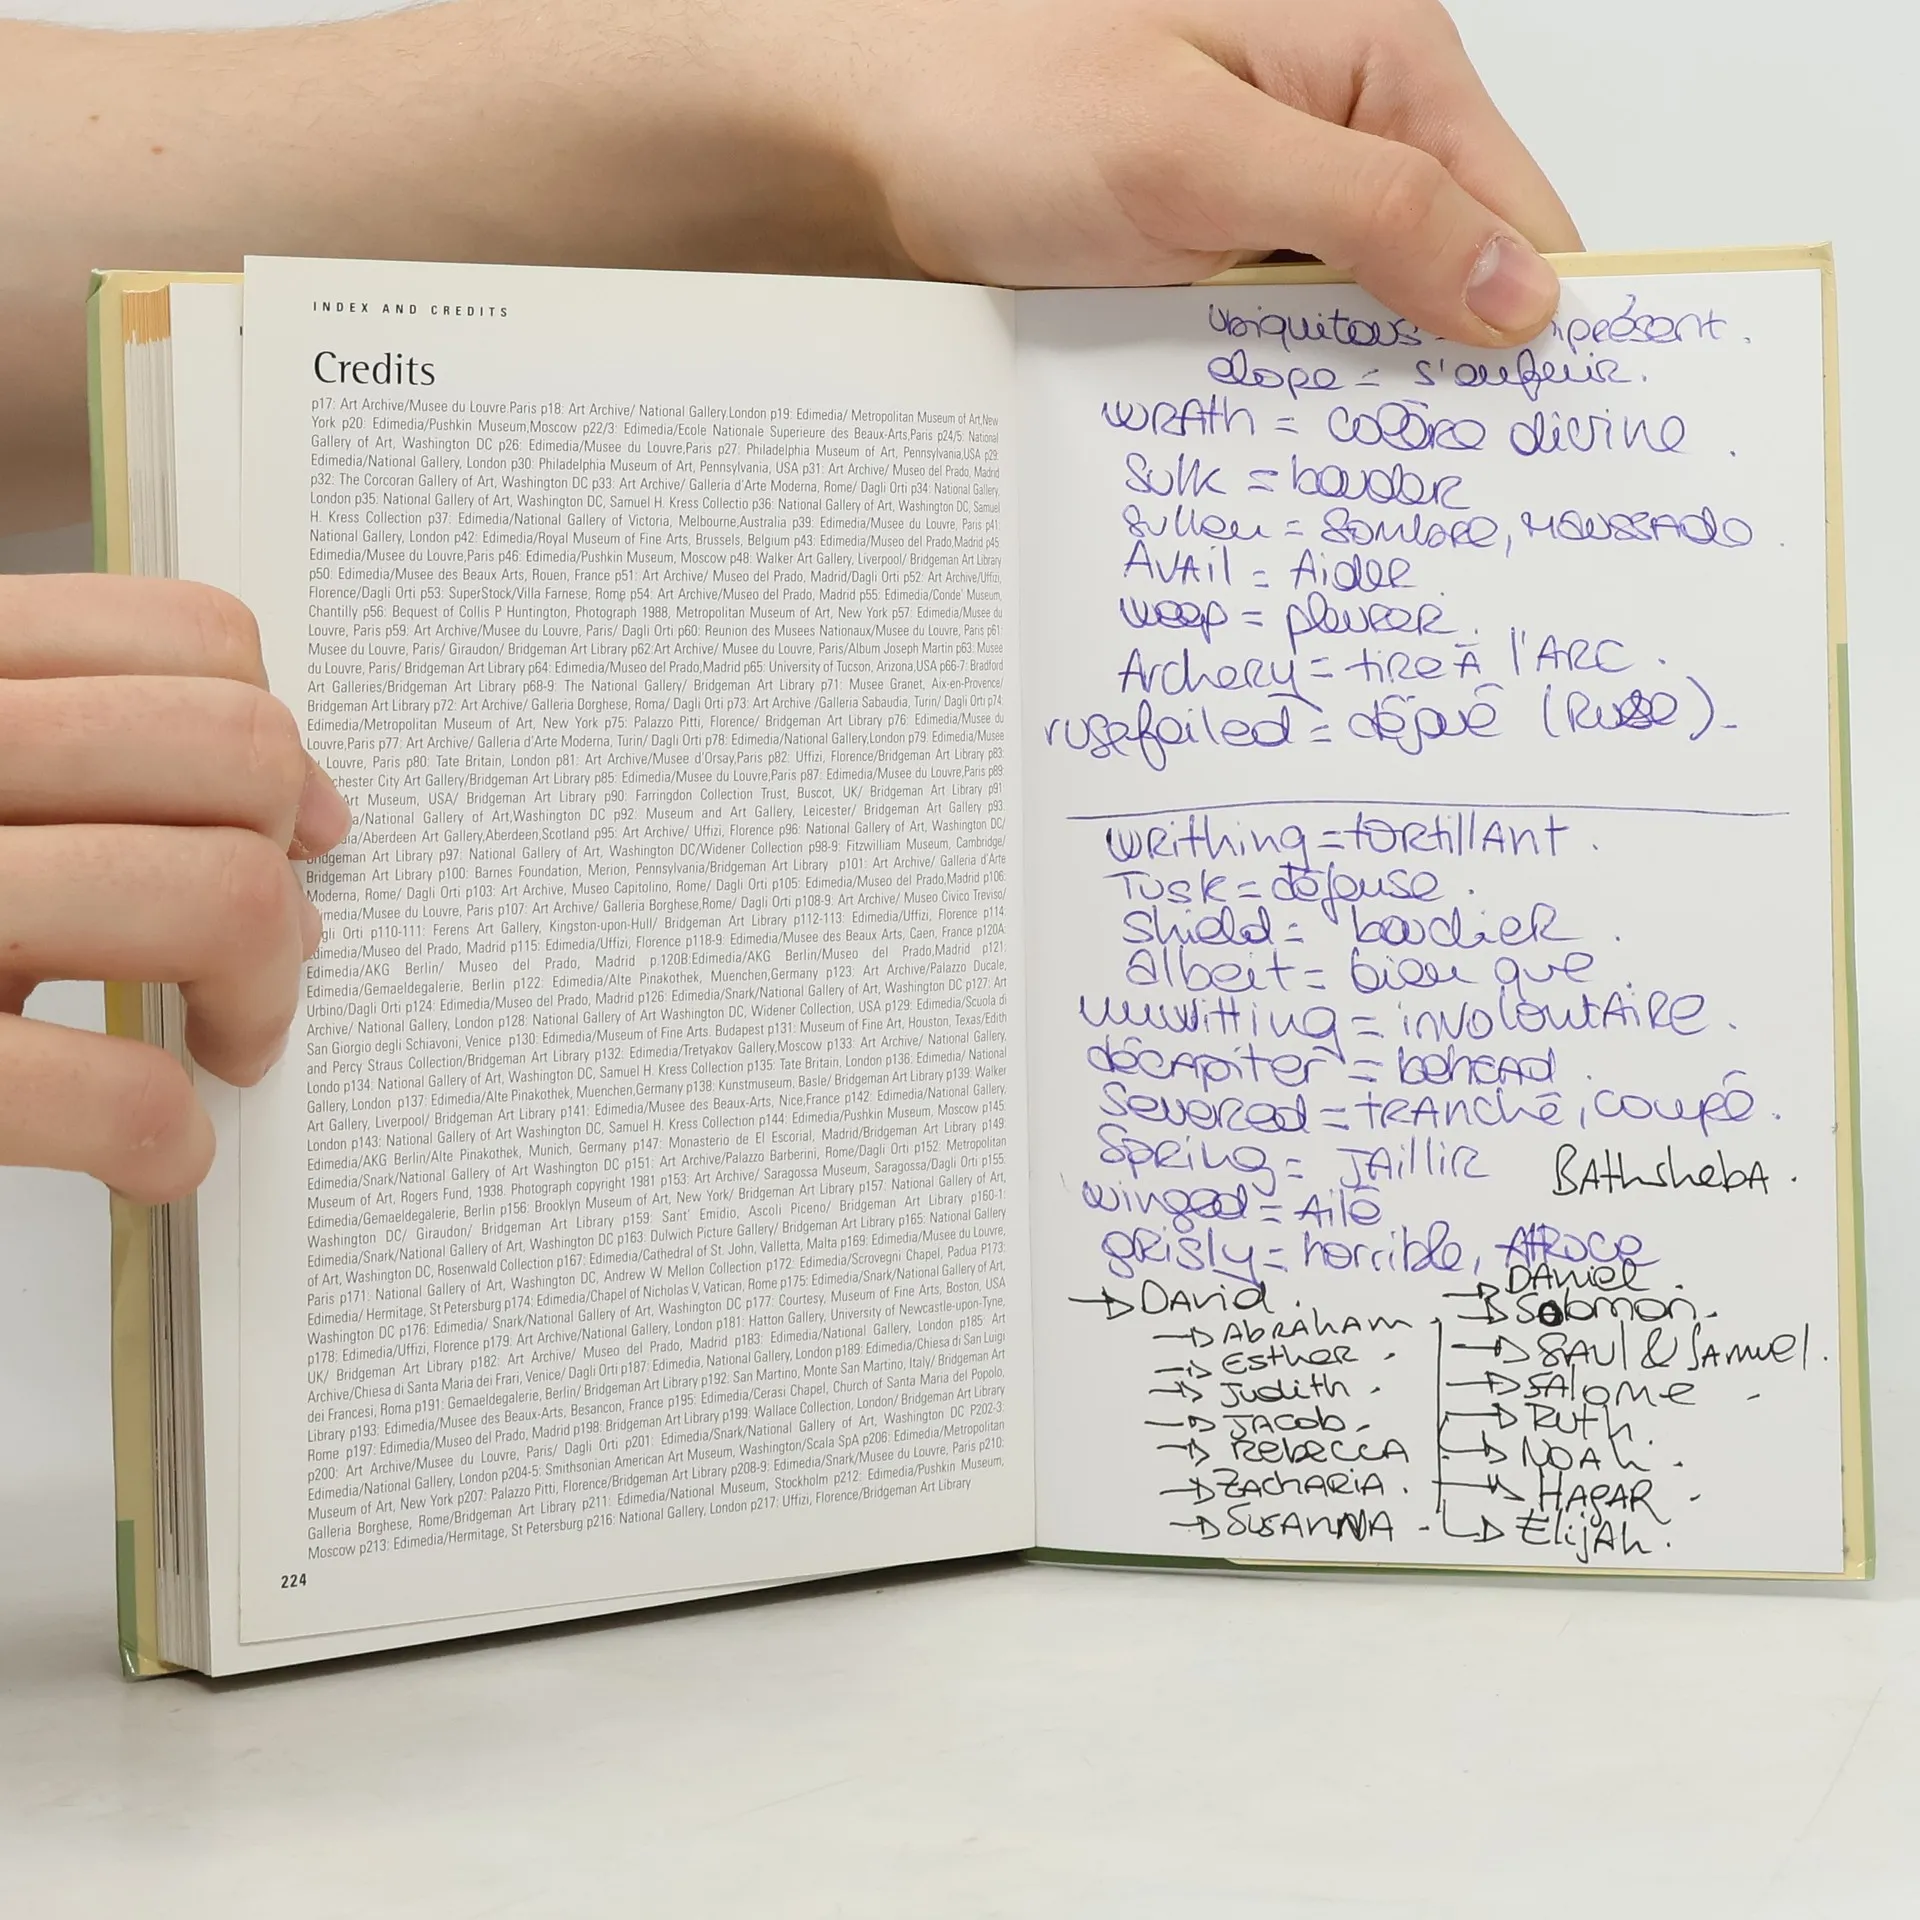 INDEX AND CREDITS
Credits
p17: Art Archive/Musee du Louvre,Paris p18: Art Archive/ National Gallery,London p19: Edimedia/ Metropolitan Museum of Art,New
York p20: Edimedia/Pushkin Museum,Moscow p22/3: Edimedia/Ecole Nationale Superieure des Beaux-Arts,Paris p24/5: National
Gallery of Art, Washington DC p26: Edimedia/Musee du Louvre,Paris p27: Philadelphia Museum of Art, Pennsylvania,USA p29:
Edimedia/National Gallery, London p30: Philadelphia Museum of Art, Pennsylvania, USA p31: Art Archive/ Museo del Prado, Madrid
p32: The Corcoran Gallery of Art, Washington DC p33: Art Archive/ Galleria d'Arte Moderna, Rome/ Dagli Orti p34: National Gallery,
London p35: National Gallery of Art, Washington DC, Samuel H. Kress Collectio p36: National Gallery of Art, Washington DC, Samuel
H. Kress Collection p37: Edimedia/National Gallery of Victoria, Melbourne,Australia p39: Edimedia/Musee du Louvre, Paris p41:
National Gallery, London p42: Edimedia/Royal Museum of Fine Arts, Brussels, Belgium p43: Edimedia/Museo del Prado,Madrid p45:
Edimedia/Musee du Louvre,Paris p46: Edimedia/Pushkin Museum, Moscow p48: Walker Art Gallery, Liverpool/ Bridgeman Art Library
p50. Edimedia/Musee des Beaux Arts, Rouen, France p51: Art Archive/ Museo del Prado, Madrid/Dagli Orti p52: Art Archive/Uffizi,
Florence/Dagli Orti p53: SuperStock/Villa Farnese, Rome p54: Art Archive/Museo del Prado, Madrid p55: Edimedia/Conde' Museum,
Chantilly p56: Bequest of Collis P Huntington, Photograph 1988, Metropolitan Museum of Art, New York p57: Edimedia/Musee du
Louvre, Paris p59: Art Archive/Musee du Louvre, Paris/ Dagli Orti p60: Reunion des Musees Nationaux/Musee du Louvre, Paris p61:
Musee du Louvre, Paris/ Giraudon/ Bridgeman Art Library p62:Art Archive/ Musee du Louvre, Paris/Album Joseph Martin p63: Musee
du Louvre, Paris/ Bridgeman Art Library p64: Edimedia/Museo del Prado,Madrid p65: University of Tucson, Arizona,USA p66-7: Bradford
Art Galleries/Bridgeman Art Library p68-9: The National Gallery/ Bridgeman Art Library p71: Musee Granet, Aix-en-Provence/
Bridgeman Art Library p72: Art Archive/ Galleria Dorghese, Roma/ Dagli Orti p73: Art Archive /Galleria Sabauda, Turin/ Dagli Orti p74:
Edimedia/Metropolitan Museum of Art, New York p75: Palazzo Pitti, Florence/ Bridgeman Art Library p76: Edimedia/Musee du
Louvre,Paris p77: Art Archive/ Galleria d'Arte Moderna, Turin/ Dagli Orti p78: Edimedia/National Gallery,London p79. Edimedia/Musee
Louvre, Paris p80: Tate Britain, London p81: Art Archive/Musee d'Orsay,Paris p82: Uffizi, Florence/Bridgeman Art Library p83:
chester City Art Gallery/Bridgeman Art Library p85: Edimedia/Musee du Louvre,Paris p87: Edimedia/Musee du Louvre,Paris p89:
Art Museum, USA/ Bridgeman Art Library p90: Farringdon Collection Trust, Buscot, UK/ Bridgeman Art Library p91:
a/National Gallery of Art,Washington DC p92: Museum and Art Gallery, Leicester/ Bridgeman Art Gallery p93:
dia/Aberdeen Art Gallery,Aberdeen,Scotland p95: Art Archive/ Uffizi, Florence p96: National Gallery of Art, Washington DC/
Bridgeman Art Library p97: National Gallery of Art, Washington DC/Widener Collection p98-9: Fitzwilliam Museum, Cambridge/
Bridgeman Art Library p100: Barnes Foundation, Merion, Pennsylvania/Bridgeman Art Library p101: Art Archive/ Galleria d'Arte
Moderna, Rome/ Dagli Orti p103: Art Archive, Museo Capitolino, Rome/ Dagli Orti p105: Edimedia/Museo del Prado,Madrid p106:
imedia/Musee du Louvre, Paris p107: Art Archive/ Galleria Borghese,Rome/ Dagli Orti p108-9: Art Archive/ Museo Civico Treviso/
gli Orti p110-111: Ferens Art Gallery, Kingston-upon-Hull/ Bridgeman Art Library p112-113: Edimedia/Uffizi, Florence p114:
Edimedia/Museo del Prado, Madrid p115: Edimedia/Uffizi, Florence p118-9: Edimedia/Musee des Beaux Arts, Caen, France p120A:
Edimedia/AKG Berlin/ Museo del Prado, Madrid p.120B:Edimedia/AKG Berlin/Museo del Prado,Madrid p121:
Edimedia/Gemaeldegalerie, Berlin p122: Edimedia/Alte Pinakothek, Muenchen,Germany p123: Art Archive/Palazzo Ducale,
Urbino/Dagli Orti p124: Edimedia/Museo del Prado, Madrid p126: Edimedia/Snark/National Gallery of Art, Washington DC p127: Art
Archive/ National Gallery, London p128: National Gallery of Art Washington DC, Widener Collection, USA p129: Edimedia/Scuola di
San Giorgio degli Schiavoni, Venice p130: Edimedia/Museum of Fine Arts. Budapest p131: Museum of Fine Art, Houston, Texas/Edith
and Percy Straus Collection/Bridgeman Art Library p132: Edimedia/Tretyakov Gallery,Moscow p133: Art Archive/ National Gallery,
Londo p134: National Gallery of Art, Washington DC, Samuel H. Kress Collection p135: Tate Britain, London p136: Edimedia/ National
Gallery, London p137: Edimedia/Alte Pinakothek, Muenchen,Germany p138: Kunstmuseum, Basle/ Bridgeman Art Library p139: Walker
Art Gallery, Liverpool/ Bridgeman Art Library p141: Edimedia/Musee des Beaux-Arts, Nice,France p142: Edimedia/National Gallery,
London p143: National Gallery of Art Washington DC, Samuel H. Kress Collection p144: Edimedia/Pushkin Museum, Moscow p145:
Edimedia/AKG Berlin/Alte Pinakothek, Munich, Germany p147: Monasterio de El Escorial, Madrid/Bridgeman Art Library p149:
Edimedia/Snark/National Gallery of Art Washington DC p151: Art Archive/Palazzo Barberini, Rome/Dagli Orti p152: Metropolitan
Museum of Art, Rogers Fund, 1938. Photograph copyright 1981 p153: Art Archive/ Saragossa Museum, Saragossa/Dagli Orti p155:
Edimedia/Gemaeldegalerie, Berlin p156: Brooklyn Museum of Art, New York/ Bridgeman Art Library p157: National Gallery of Art,
Washington DC/ Giraudon/ Bridgeman Art Library p159: Sant' Emidio, Ascoli Piceno/ Bridgeman Art Library p160-1:
Edimedia/Snark/National Gallery of Art, Washington DC p163: Dulwich Picture Gallery/ Bridgeman Art Library p165: National Gallery
of Art, Washington DC, Rosenwald Collection p167: Edimedia/Cathedral of St. John, Valletta, Malta p169: Edimedia/Musee du Louvre,
Paris p171: National Gallery of Art, Washington DC, Andrew W Mellon Collection p172: Edimedia/Scrovegni Chapel, Padua P173:
Edimedia/ Hermitage, St Petersburg p174: Edimedia/Chapel of Nicholas V, Vatican, Rome p175: Edimedia/Snark/National Gallery of Art,
Washington DC p176: Edimedia/ Snark/National Gallery of Art, Washington DC p177: Courtesy, Museum of Fine Arts, Boston, USA
p178: Edimedia/Uffizi, Florence p179: Art Archive/National Gallery, London p181: Hatton Gallery, University of Newcastle-upon-Tyne,
UK/ Bridgeman Art Library p182: Art Archive/ Museo del Prado, Madrid p183: Edimedia/National Gallery, London p185: Art
Archive/Chiesa di Santa Maria dei Frari, Venice/ Dagli Orti p187: Edimedia, National Gallery, London p189: Edimedia/Chiesa di San Luigi
dei Francesi, Roma p191: Gemaeldegalerie, Berlin/ Bridgeman Art Library p192: San Martino, Monte San Martino, Italy/ Bridgeman Art
Library p193: Edimedia/Musee des Beaux-Arts, Besancon, France p195: Edimedia/Cerasi Chapel, Church of Santa Maria del Popolo,
Rome p197: Edimedia/Museo del Prado, Madrid p198: Bridgeman Art Library p199: Wallace Collection, London/ Bridgeman Art Library
p200: Art Archive/Musee du Louvre, Paris/ Dagli Orti p201: Edimedia/Snark/National Gallery of Art, Washington DC P202-3:
Edimedia/National Gallery, London p204-5: Smithsonian American Art Museum, Washington/Scala SpA p206: Edimedia/Metropolitan
Museum of Art, New York p207: Palazzo Pitti, Florence/Bridgeman Art Library p208-9: Edimedia/Snark/Musee du Louvre, Paris p210:
Galleria Borghese, Rome/Bridgeman Art Library p211: Edimedia/National Museum, Stockholm p212: Edimedia/Pushkin Museum,
Moscow p213: Edimedia/Hermitage, St Petersburg p216: National Gallery, London p217: Uffizi, Florence/Bridgeman Art Library
224
ubiquitous présent.
elope = s'enfuir.
WRAth = colère divine.
Sulk = bouder
sullen = sombre, maussade.
Avail = Aider.
weep = pleurer.
Archery = tire à l'ARC.
rusefoiled = déjoué (Ruse).
writhing = tortillant.
Tusk = défense.
Shield = bouclier.
albeit = bien que.
unwitting = involontaire.
décapiter = behead.
Severed = tranché, coupé.
Spring = JAillir
BAthshebA.
winged = Ailé
grisly = horrible, Atroce
→ DAvid.
→ AbRAhAm.
→ Esther.
→ Judith.
→ JAcob.
→ RebeccA
→ ZAchARiA.
→ SusAnnA.
→ DAniel.
→ Solomon.
→ SAUl & SAmuel.
→ SAlome
→ Ruth.
→ NOAh.
→ HAgAR
→ ElijAh.